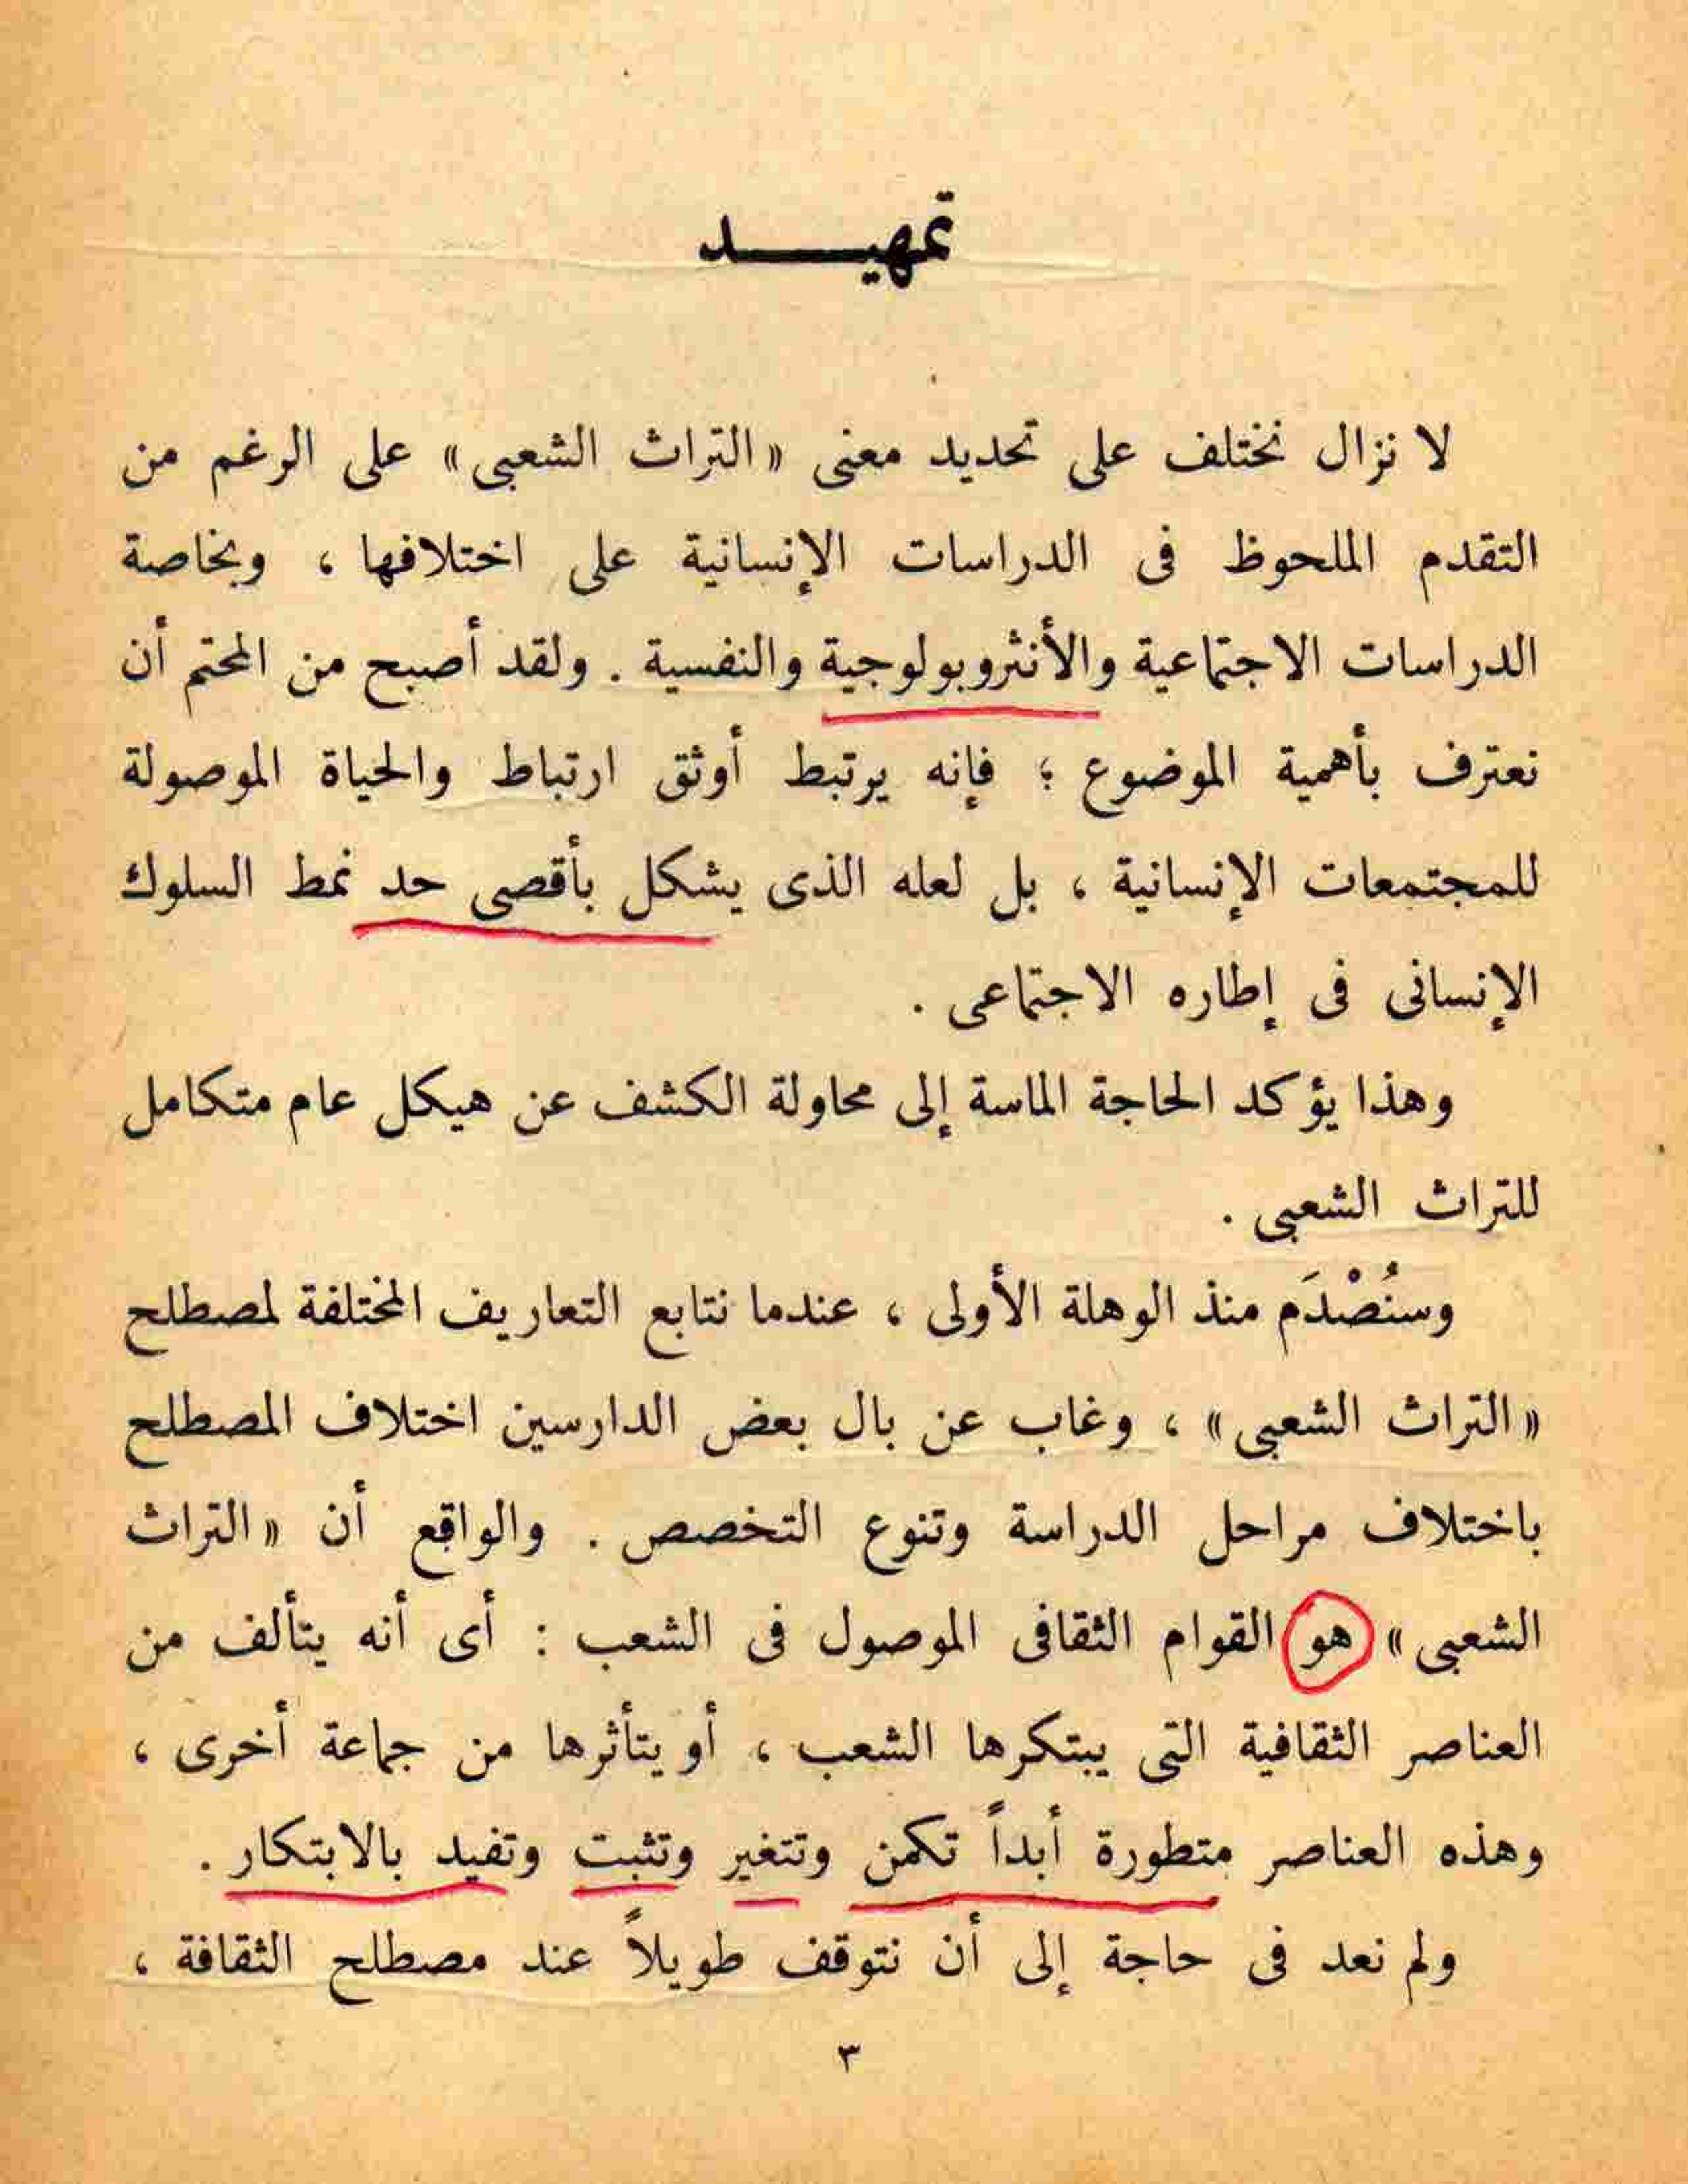 تمهيـــــد
لا نزال نختلف على تحديد معنى «التراث الشعبى» على الرغم من
التقدم الملحوظ فى الدراسات الإنسانية على اختلافها ، وبخاصة
الدراسات الاجتماعية والأنثروبولوجية والنفسية . ولقد أصبح من المحتم أن
نعترف بأهمية الموضوع ؛ فإنه يرتبط أوثق ارتباط والحياة الموصولة
للمجتمعات الإنسانية ، بل لعله الذى يشكل بأقصى حد نمط السلوك
الإنسانى فى إطاره الاجتماعى .
وهذا يؤكد الحاجة الماسة إلى محاولة الكشف عن هيكل عام متكامل
للتراث الشعبى .
وسنُصْدَم منذ الوهلة الأولى ، عندما نتابع التعاريف المختلفة لمصطلح
«التراث الشعبى» ، وغاب عن بال بعض الدارسين اختلاف المصطلح
باختلاف مراحل الدراسة وتنوع التخصص . والواقع أن «التراث
الشعبى» هو القوام الثقافى الموصول فى الشعب : أى أنه يتألف من
العناصر الثقافية التى يبتكرها الشعب ، أو يتأثرها من جماعة أخرى ،
وهذه العناصر متطورة أبداً تكمن وتتغير وتثبت وتفيد بالابتكار .
ولم نعد فى حاجة إلى أن نتوقف طويلاً عند مصطلح الثقافة ،
٣